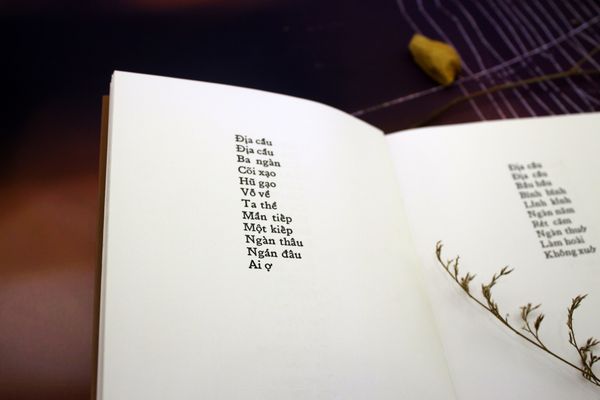 Địa cầu
Địa cầu
Ba ngàn
Cõi xạo
Hũ gạo
Vỗ về
Ta thề
Mần tiếp
Một kiếp
Ngàn thâu
Ngán đâu
Ai ợ
Địa cầu
Địa cầu
Bầu bầu
Bình bình
Linh kinh
Ngàn năm
Rét căm
Ngàn thuở
Làm hoài
Không xuể